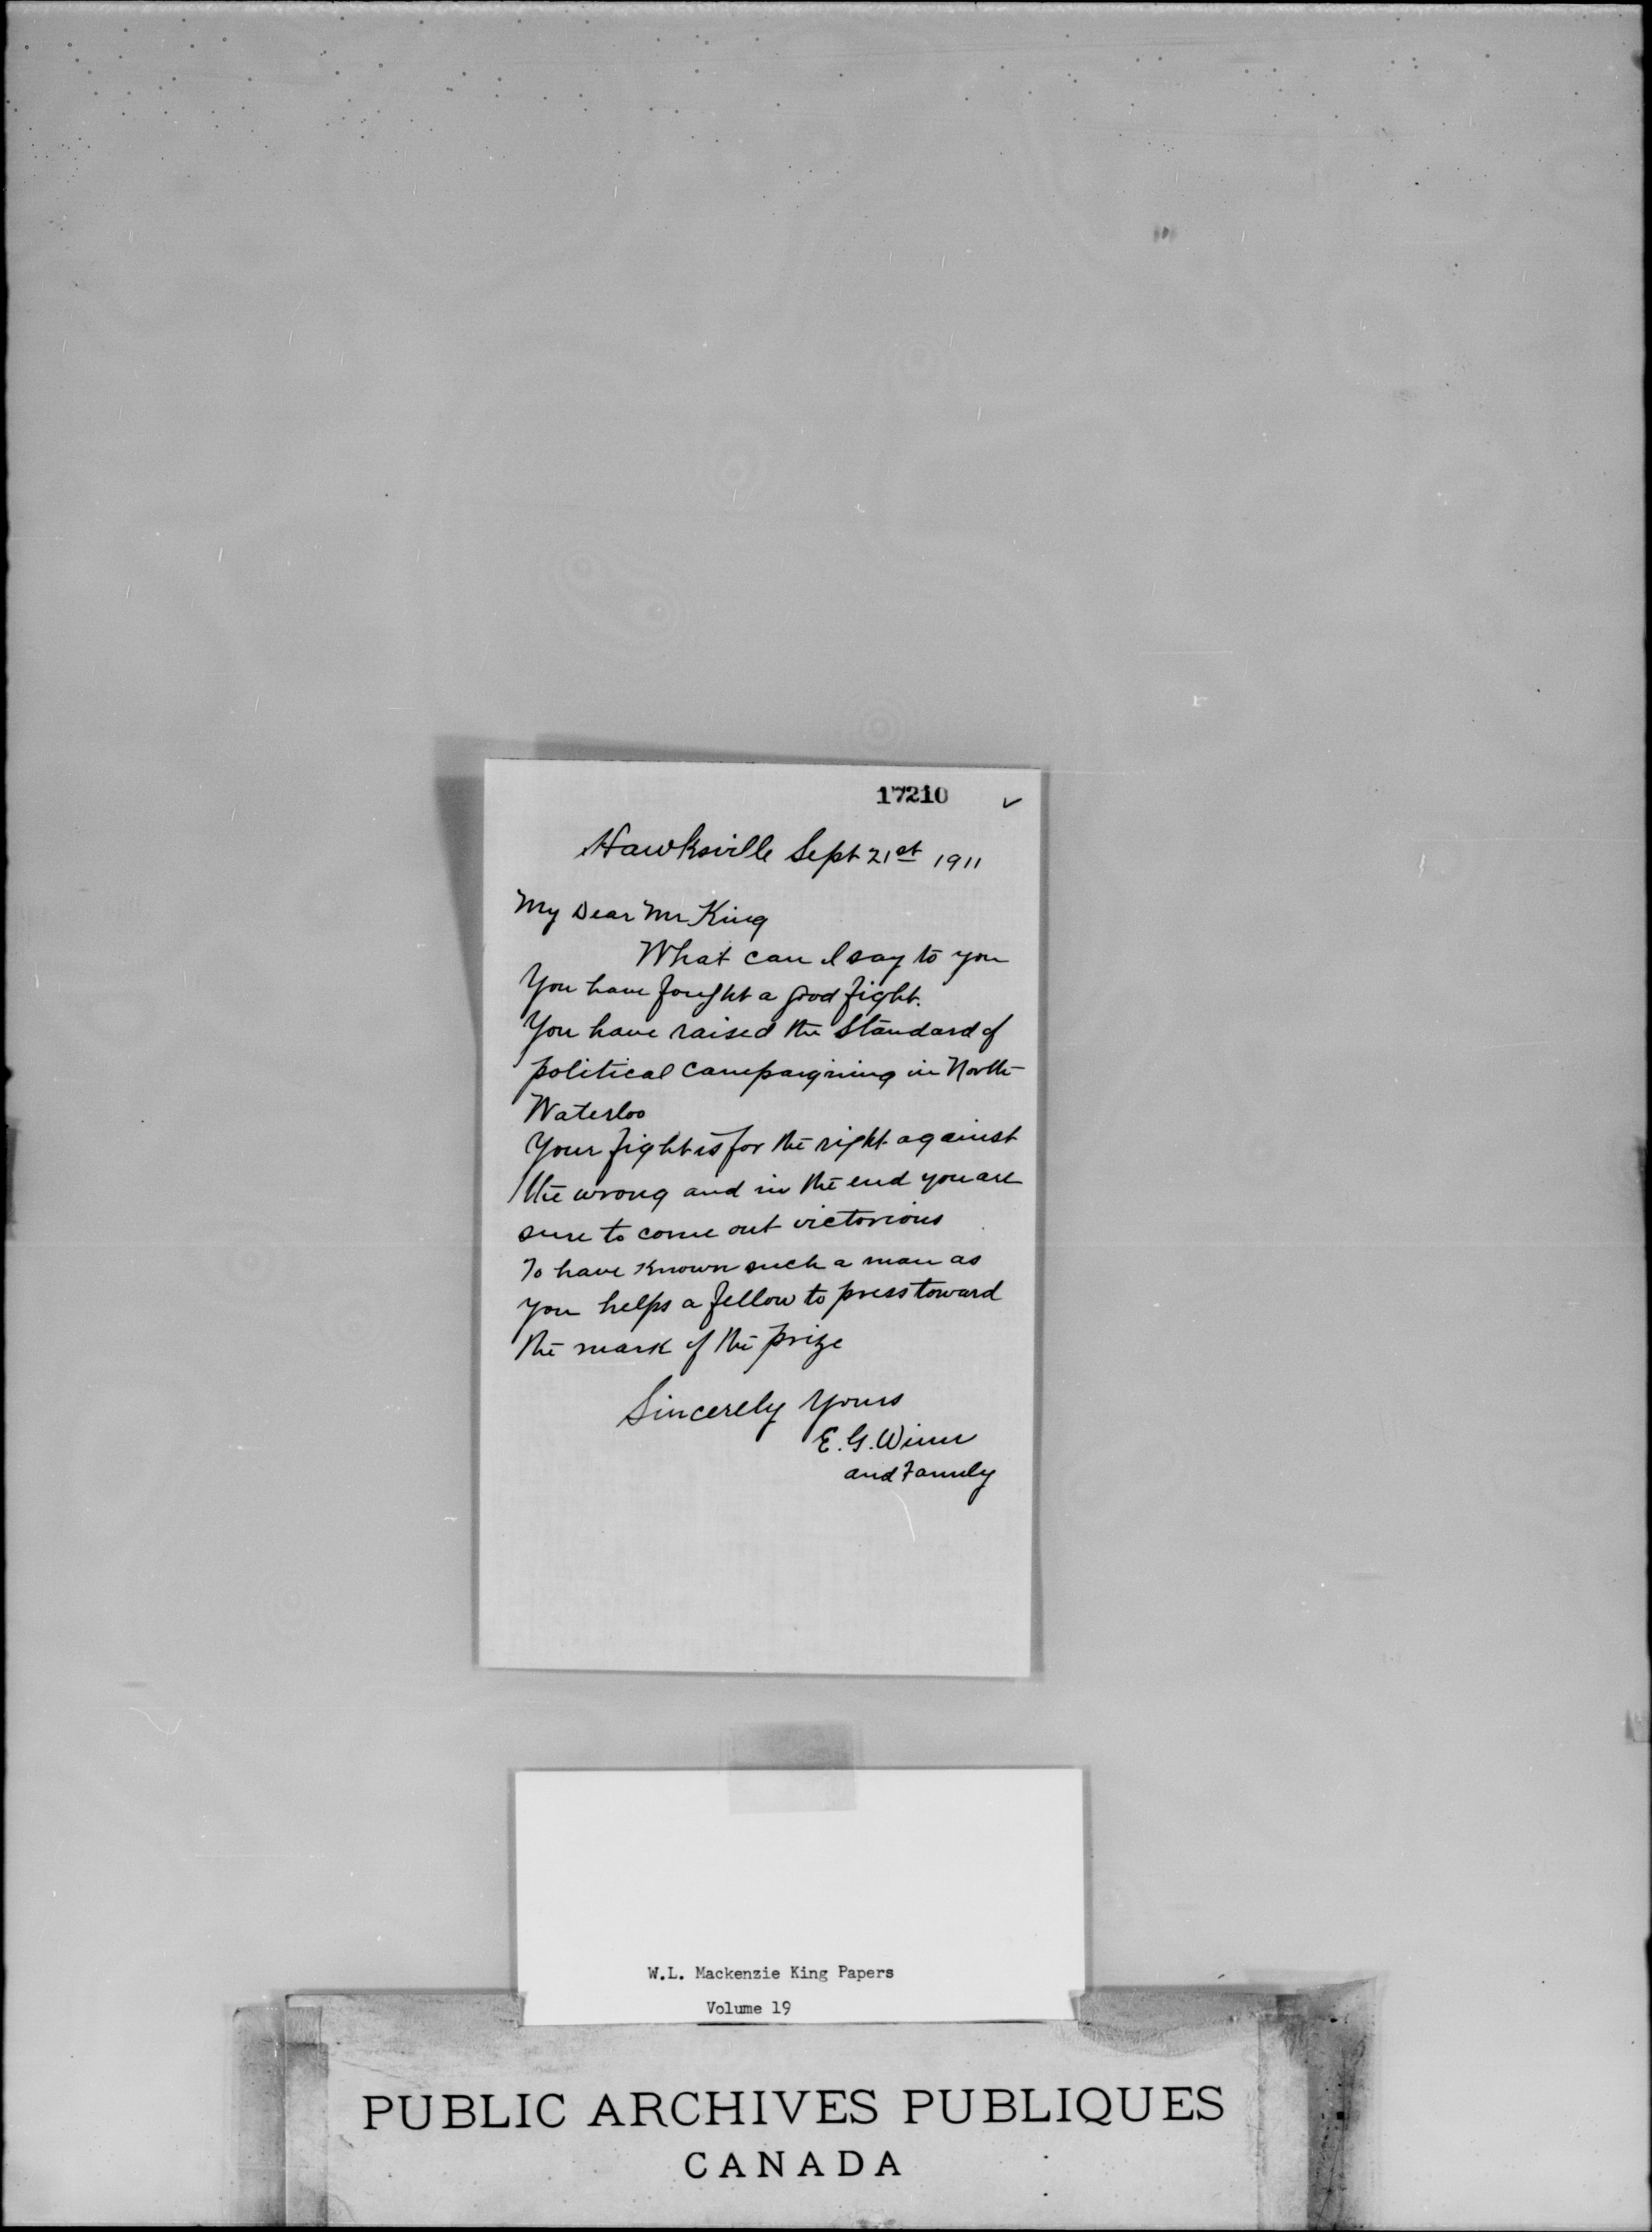 17210 ✓
Hawksville Sept 21st 1911
My Dear Mr King
What can I say to you
You have fought a good fight.
You have raised the Standard of
political campaigning in North
Waterloo
Your fight is for the right against
the wrong and in the end you are
sure to come out victorious
To have known such a man as
you helps a fellow to press toward
the mark of the prize
Sincerely Yours
E. G.
and Family
W.L. Mackenzie King Papers
Volume 19
PUBLIC ARCHIVES PUBLIQUES
CANADA